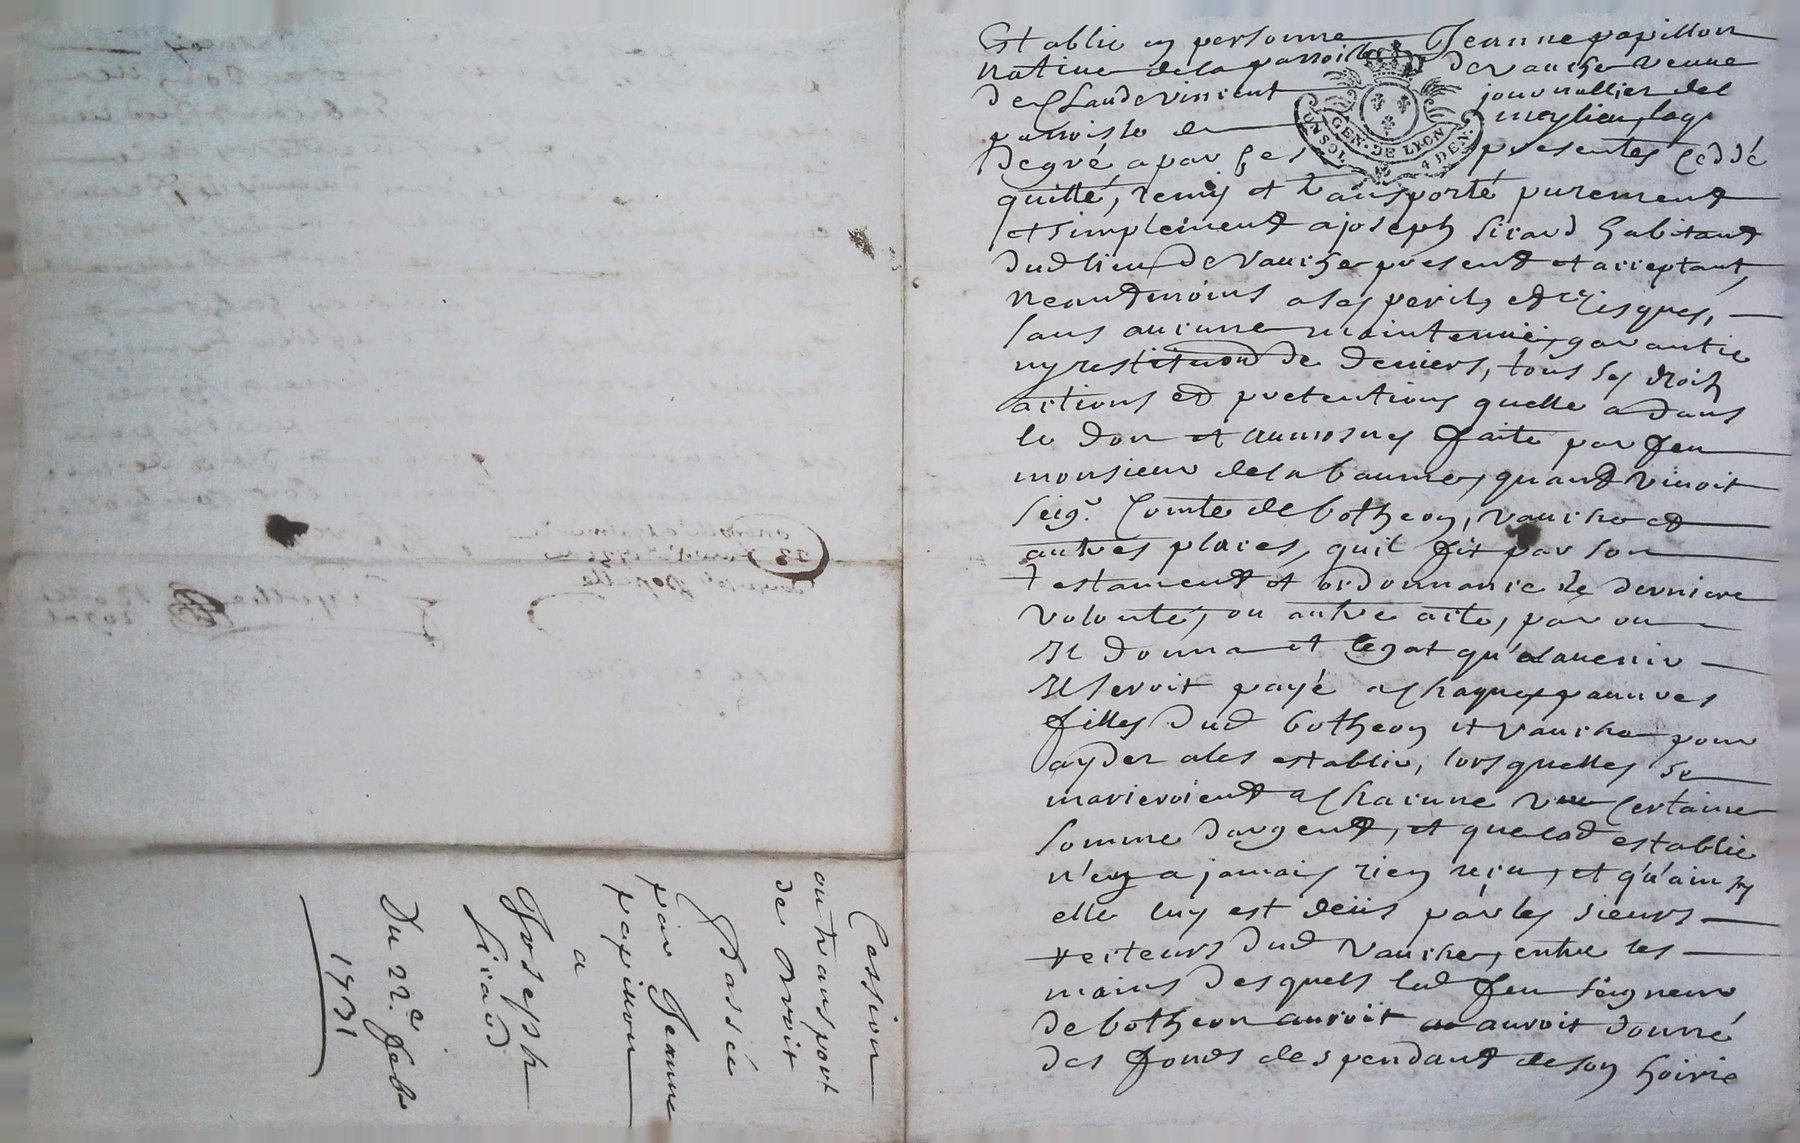 Establie en personne Jeanne papillon
native de la parroisse de vauche veuve
de Claude vincent journallier de la
parroisse de meylieu, laq.
GEN. DE LYON
UN SOL. 4 DEN.
de gré a par ses presentes ceddé
quitté, remis et transporté purement
et simplement a joseph sicaud habitant
dud lieu de vauche present et acceptant,
neantmoins a ses perils et risques,
sans aucune maintenüe, garantie
ny restituon de deniers, tous ses droits
actions et pretentions quelle a dans
le don et aumosnes faite par feu
monsieur de la baume, quand vivoit
seigr. Comte de botheon, vauche et
autres places, quil fit par son
testament et ordonnance de derniere
volonté, ou autre acte, par ou
Il donna et legat qu'a lavenir
Il seroit payé a chaques pauvres
filles dud botheon et vauche pour
ayder a les establir, lorsquelles se
marieroient a chacune une certaine
somme dargent, et que lad establie
n'en a jamais rien reçu, et qu'ainsy
elle luy est deüs par les sieurs
recteurs dud vauche, entre les
mains desquels led feu seigneur
de botheon auroit auroit donné
des fonds despendant de son hoirie
Cession
ou transport
de droit
Passée
par Jeanne
papillon
a
Joseph
sicaud
Du 22e. febr
1731